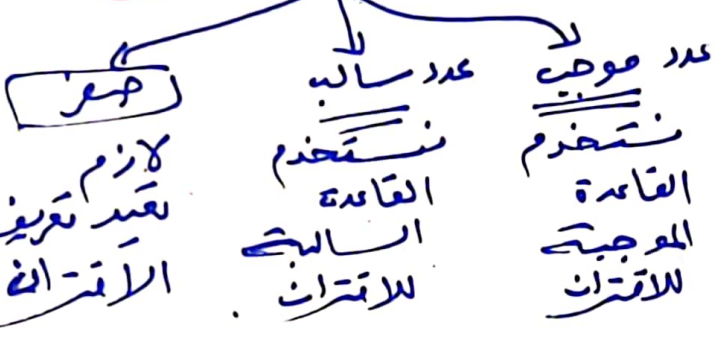 عدد موجب
نستخدم
القاعدة
الموجبة
للاقتران
عدد سالب
نستخدم
القاعدة
السالبة
للاقتران
صفر
لازم
نعيد تعريف
الاقتران